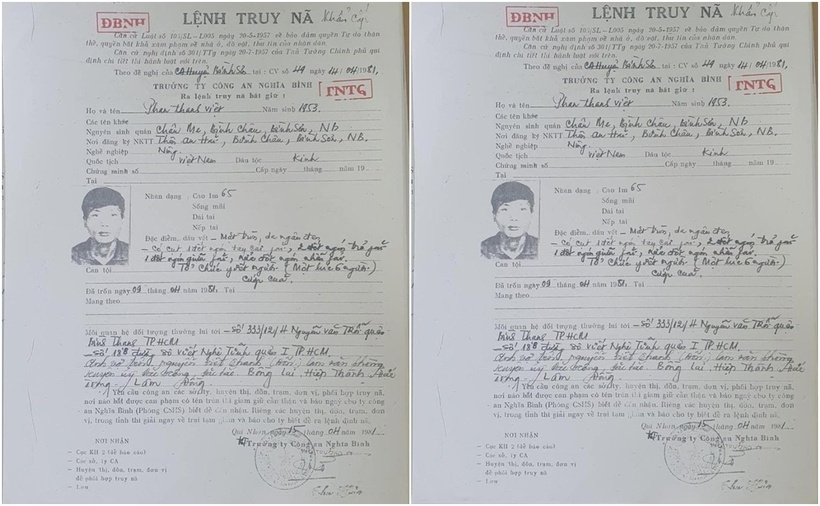 ĐBNH
LỆNH TRUY NÃ Khẩn Cấp
Căn cứ Luật số 103/SL-L005 ngày 20-5-1957 về bảo đảm quyền Tự do thân
thể, quyền bất khả xâm phạm về nhà ở, đồ vật, thư tín của nhân dân.
Căn cứ nghị định số 301/TTg ngày 20-7-1957 của Toà Tướng Chính phủ qui
định chi tiết thi hành luật nói trên.
Theo đề nghị của CA Huyện Bình Sơn tại : CV số 49 ngày 14-04-1981,
TRƯỞNG TY CÔNG AN NGHĨA BÌNH
Ra lệnh truy nã bắt giữ :
TNTG
Họ và tên Phan Thanh Việt Năm sinh 1953.
Các tên khác
Nguyên sinh quán Châu Me, Bình Châu, Bình Sơn, NB
Nơi đăng ký NKTT Thôn An Hải, Bình Châu, Bình Sơn, NB.
Nghề nghiệp Nông
Quốc tịch Việt Nam Dân tộc Kinh
Chứng minh số Cấp ngày tháng năm 19
Tại
Nhân dạng : Cao 1m 65
Sống mũi
Dái tai
Nếp tai
Đặc điểm, dấu vết - Mặt tròn, da ngăn đen
- Có cụt 1 đốt ngón tay
1 đốt ngón giữa
Can tội Tổ chức vượt người. (Một lúc 6 người.)
Cướp của.
Đã trốn ngày 09 tháng 04 năm 1981. Tại
Mang theo
Mối quan hệ đối tượng thường lui tới - Số 333/12/H Nguyễn Văn Trỗi quận
Bình Thạnh TP.HCM
- Số 186 đường Xô Viết Nghệ Tĩnh quận I, TP.HCM.
Lâm Đồng.
Yêu cầu công an các sở, ty, huyện thị, đồn, trạm, đơn vị, phối hợp truy nã,
nơi nào bắt được can phạm có tên trên thì giam giữ cẩn thận và báo ngay cho ty công
an Nghĩa Bình (Phòng CSHS) biết để đến nhận. Riêng các huyện thị, đồn, trạm, đơn
vị, trung tỉnh thì giải ngay về trại tạm giam và báo cho ty biết để ra lệnh đình nã.
Qui Nhơn, ngày 15 tháng 04 năm 1981
Trưởng ty Công an Nghĩa Bình
NƠI NHẬN
- Cục KH 2 (để báo cáo)
- Các sở, ty CA
- Huyện Thị, đồn, trạm, đơn vị
để phối hợp truy nã
- Lưu
ĐBNH
LỆNH TRUY NÃ Khẩn Cấp
Căn cứ Luật số 103/SL-L005 ngày 20-5-1957 về bảo đảm quyền Tự do thân
thể, quyền bất khả xâm phạm về nhà ở, đồ vật, thư tín của nhân dân.
Căn cứ nghị định số 301/TTg ngày 20-7-1957 của Toà Tướng Chính phủ qui
định chi tiết thi hành luật nói trên.
Theo đề nghị của CA Huyện Bình Sơn tại : CV số 49 ngày 14-04-1981,
TRƯỞNG TY CÔNG AN NGHĨA BÌNH
Ra lệnh truy nã bắt giữ :
TNTG
Họ và tên Phan Thanh Việt Năm sinh 1953.
Các tên khác
Nguyên sinh quán Châu Me, Bình Châu, Bình Sơn, NB
Nơi đăng ký NKTT Thôn An Hải, Bình Châu, Bình Sơn, NB.
Nghề nghiệp Nông
Quốc tịch Việt Nam Dân tộc Kinh
Chứng minh số Cấp ngày tháng năm 19
Tại
Nhân dạng : Cao 1m 65
Sống mũi
Dái tai
Nếp tai
Đặc điểm, dấu vết - Mặt tròn, da ngăn đen
- Có cụt 1 đốt ngón tay
1 đốt ngón giữa
Can tội Tổ chức vượt người. (Một lúc 6 người.)
Cướp của.
Đã trốn ngày 09 tháng 04 năm 1981. Tại
Mang theo
Mối quan hệ đối tượng thường lui tới - Số 333/12/H Nguyễn Văn Trỗi quận
Bình Thạnh TP.HCM
- Số 186 đường Xô Viết Nghệ Tĩnh quận I, TP.HCM.
Lâm Đồng.
Yêu cầu công an các sở, ty, huyện thị, đồn, trạm, đơn vị, phối hợp truy nã,
nơi nào bắt được can phạm có tên trên thì giam giữ cẩn thận và báo ngay cho ty công
an Nghĩa Bình (Phòng CSHS) biết để đến nhận. Riêng các huyện thị, đồn, trạm, đơn
vị, trung tỉnh thì giải ngay về trại tạm giam và báo cho ty biết để ra lệnh đình nã.
Qui Nhơn, ngày 15 tháng 04 năm 1981
Trưởng ty Công an Nghĩa Bình
NƠI NHẬN
- Cục KH 2 (để báo cáo)
- Các sở, ty CA
- Huyện Thị, đồn, trạm, đơn vị
để phối hợp truy nã
- Lưu